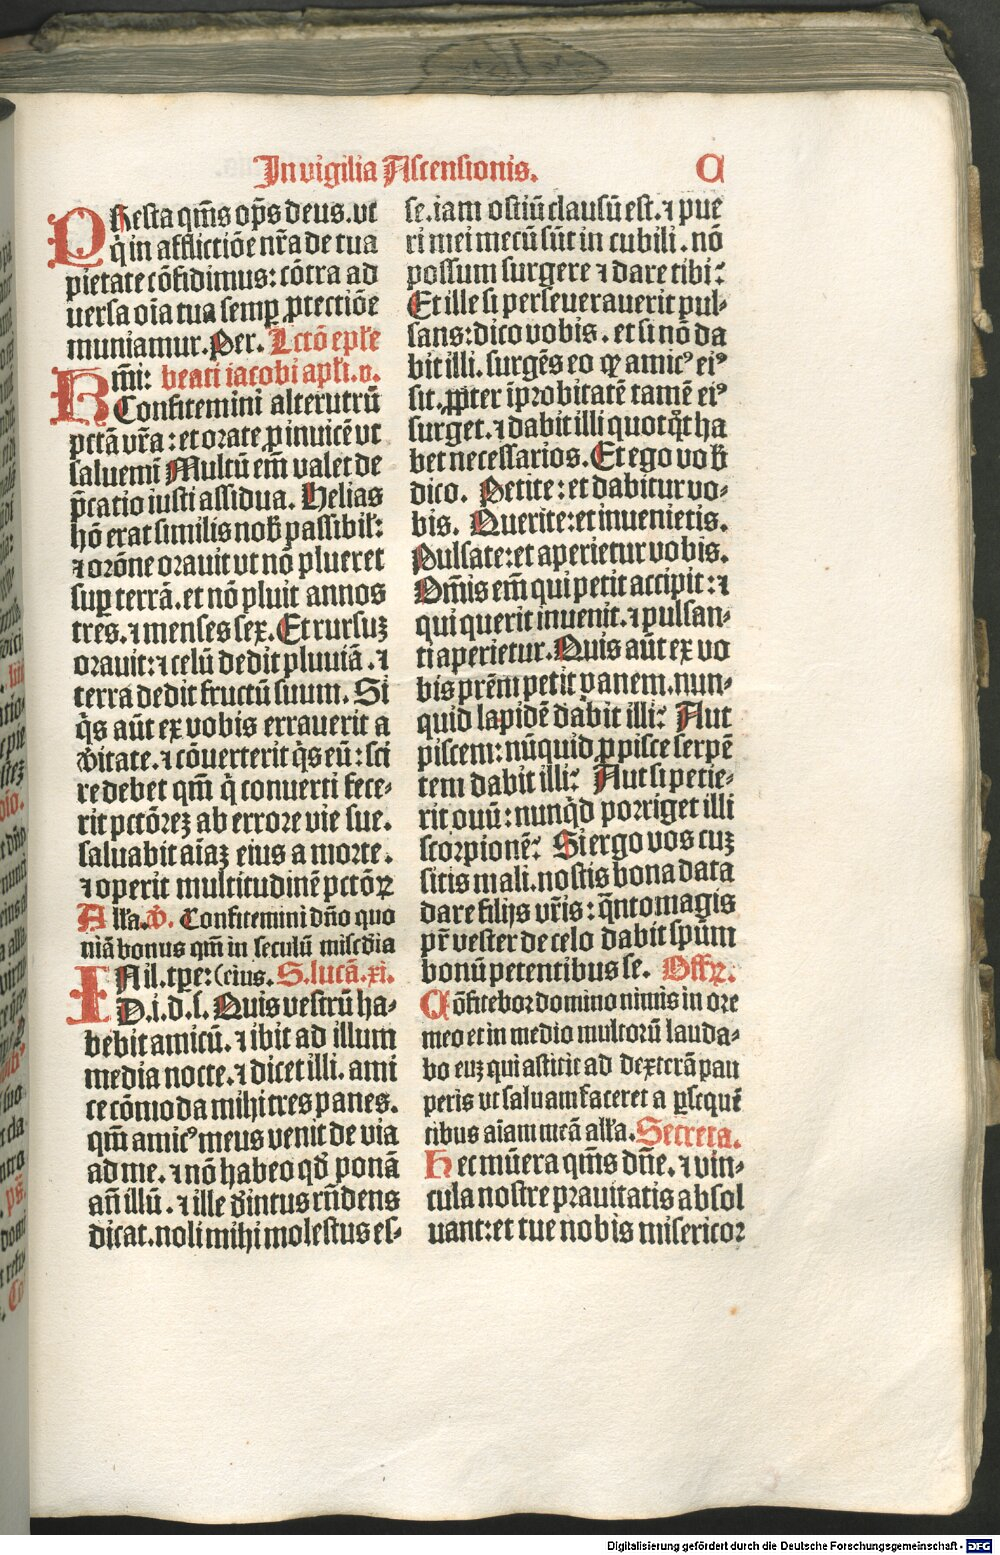 In vigilia Ascensionis.
C
PResta qm̄s op̄s deus. vt
q̇ in afflictiōe nr̄a de tua
pietate cōfidimus: cōtra ad
uersa oīa tua semꝑ ꝓtectiōe
muniamur. Per. Lctō ep̄łe
beati iacobi apłi. v.
Confitemini alterutrū
pctā vr̄a: et orate ꝓ inuicē vt
saluemī Multū em̄ valet de
p̄catio iusti assidua. Helias
hō erat similis nob̄ passibił:
⁊ orōne orauit ut nō plueret
suꝑ terrā. et nō pluit annos
tres. ⁊ menses sex. Et rursuꝫ
orauit: ⁊ celū dedit pluuiā. ⁊
terra dedit fructū suum. Si
q̇s aūt ex vobis errauerit a
v̄itate. ⁊ cōuerterit q̇s eū: sci
re debet qm̄ q̇ conuerti fece-
rit pctōreꝫ ab errore vie sue.
saluabit aīaꝫ eius a morte.
⁊ operit multitudinē pctōꝝ
Ałła. v̄. Confitemini dn̄o quo
niā bonus qm̄ in seculū misc̄dia
INil. tp̄e: (eius. S. lucā. xi.
D. i. d. s. Quis vestrū ha-
bebit amicū. ⁊ ibit ad illum
media nocte. ⁊ dicet illi. ami
ce cōmoda mihi tres panes.
qm̄ amicꝰ meus venit de via
ad me. ⁊ nō habeo qd̄ ponā
an̄ illū. ⁊ ille d̄intus rn̄dens
dicat. noli mihi molestus es-
se. iam ostiū clausū est. ⁊ pue
ri mei mecū sūt in cubili. nō
possum surgere ⁊ dare tibi:
Et ille si perseuerauerit pul-
sans: dico vobis. et si nō da
bit illi. surgēs eo ꝙ amicꝰ eiꝰ
sit. ꝓpter īprobitatē tamē eiꝰ
surget. ⁊ dabit illi quotq̇t ha
bet necessarios. Et ego vob̄
dico. Petite: et dabitur vo-
bis. Querite: et inuenietis.
Pulsate: et aperietur vobis.
Om̄is em̄ qui petit accipit: ⁊
qui querit inuenit. ⁊ pulsan-
ti aperietur. Quis aūt ex vo
bis prēm petit panem. nun-
quid lapidē dabit illi: Aut
piscem: nūquid ꝓ pisce serpē
tem dabit illi: Aut si petie-
rit ouū: nunq̇d porriget illi
scorpionē: Si ergo vos cuꝫ
sitis mali. nostis bona data
dare filijs vr̄is: q̄nto magis
pr̄ vester de celo dabit spūm
bonū petentibus se. Offꝝ.
Cōfitebor domino nimis in ore
meo et in medio multorū lauda-
bo euꝫ qui astitit ad dexterā pau
peris vt saluam faceret a ꝑsequē
tibus aīam meā ałła. Secreta.
Hec mūera qm̄s dn̄e. ⁊ vin-
cula nostre prauitatis absol
uant: et tue nobis misericor
Digitalisierung gefördert durch die Deutsche Forschungsgemeinschaft - DFG